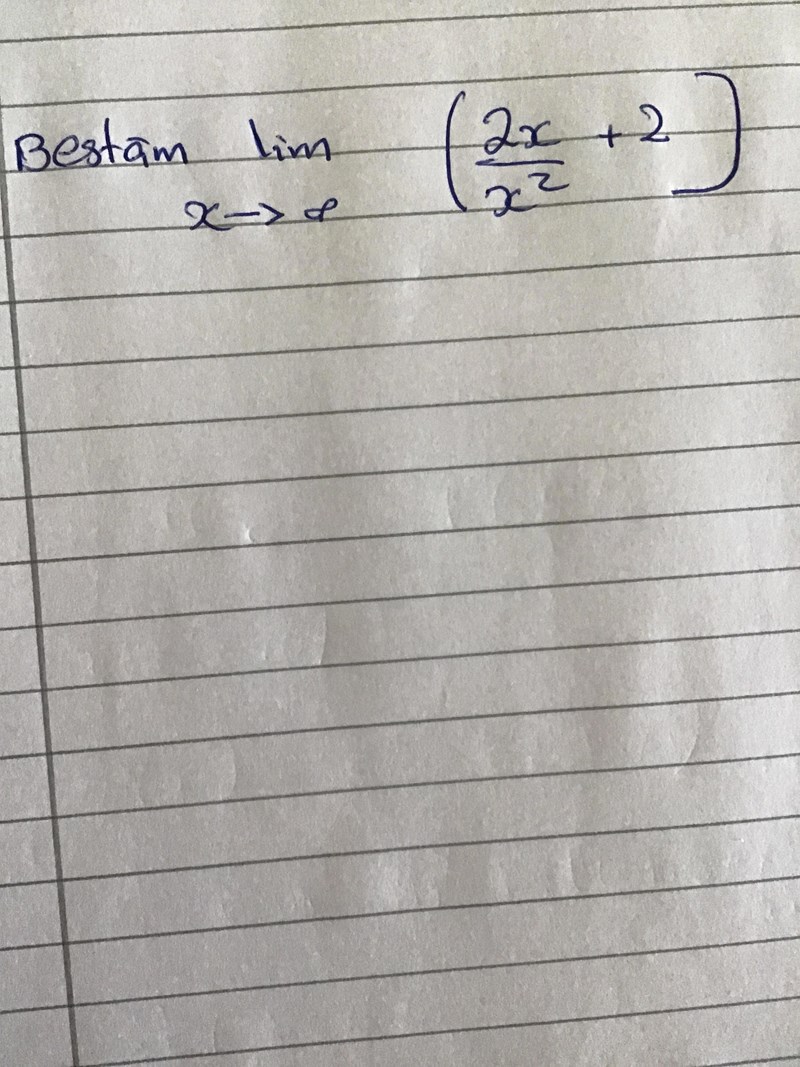 Bestäm lim (2x/x² + 2]
x→∞